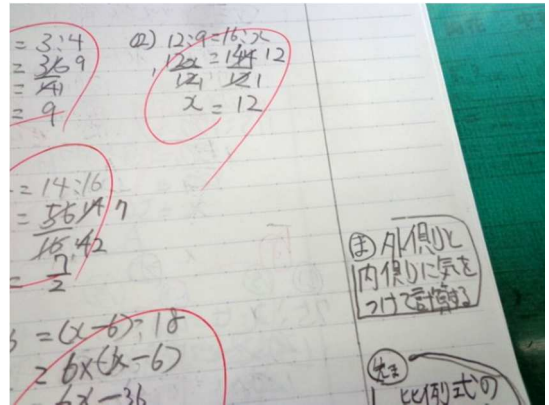 = 3:4
= 36 9
= 41
= 9
(2) 12:9=16:x
12x = 144 12
121 121
x = 12
= 14:16
= 56 14 7
16 4 2
= 7
2
= (x-6):18
= 6×(x-6)
6x-36
ま 外側と
内側に気を
つけて計算する
先ま
比例式の